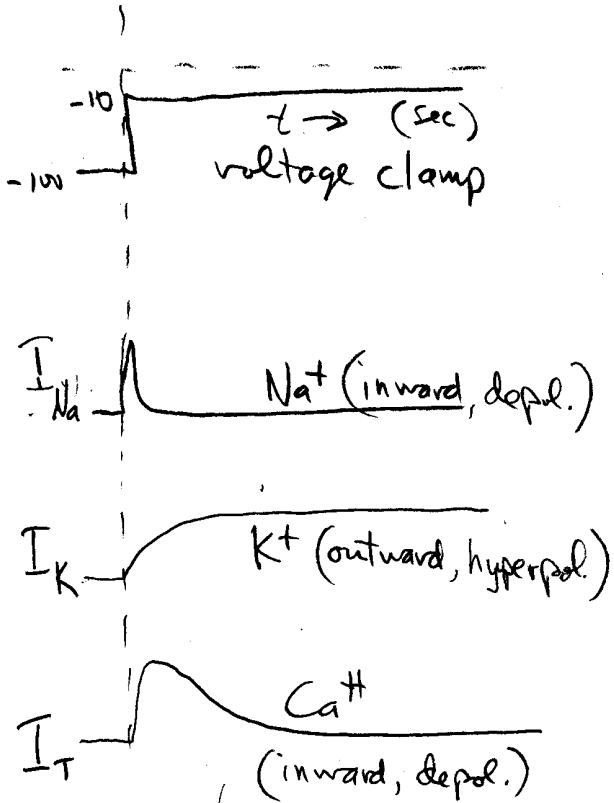 -10
t → (sec)
-100
voltage clamp
I Na
Na+ (inward, depol.)
I K
K+ (outward, hyperpol.)
I T
Ca++
(inward, depol.)